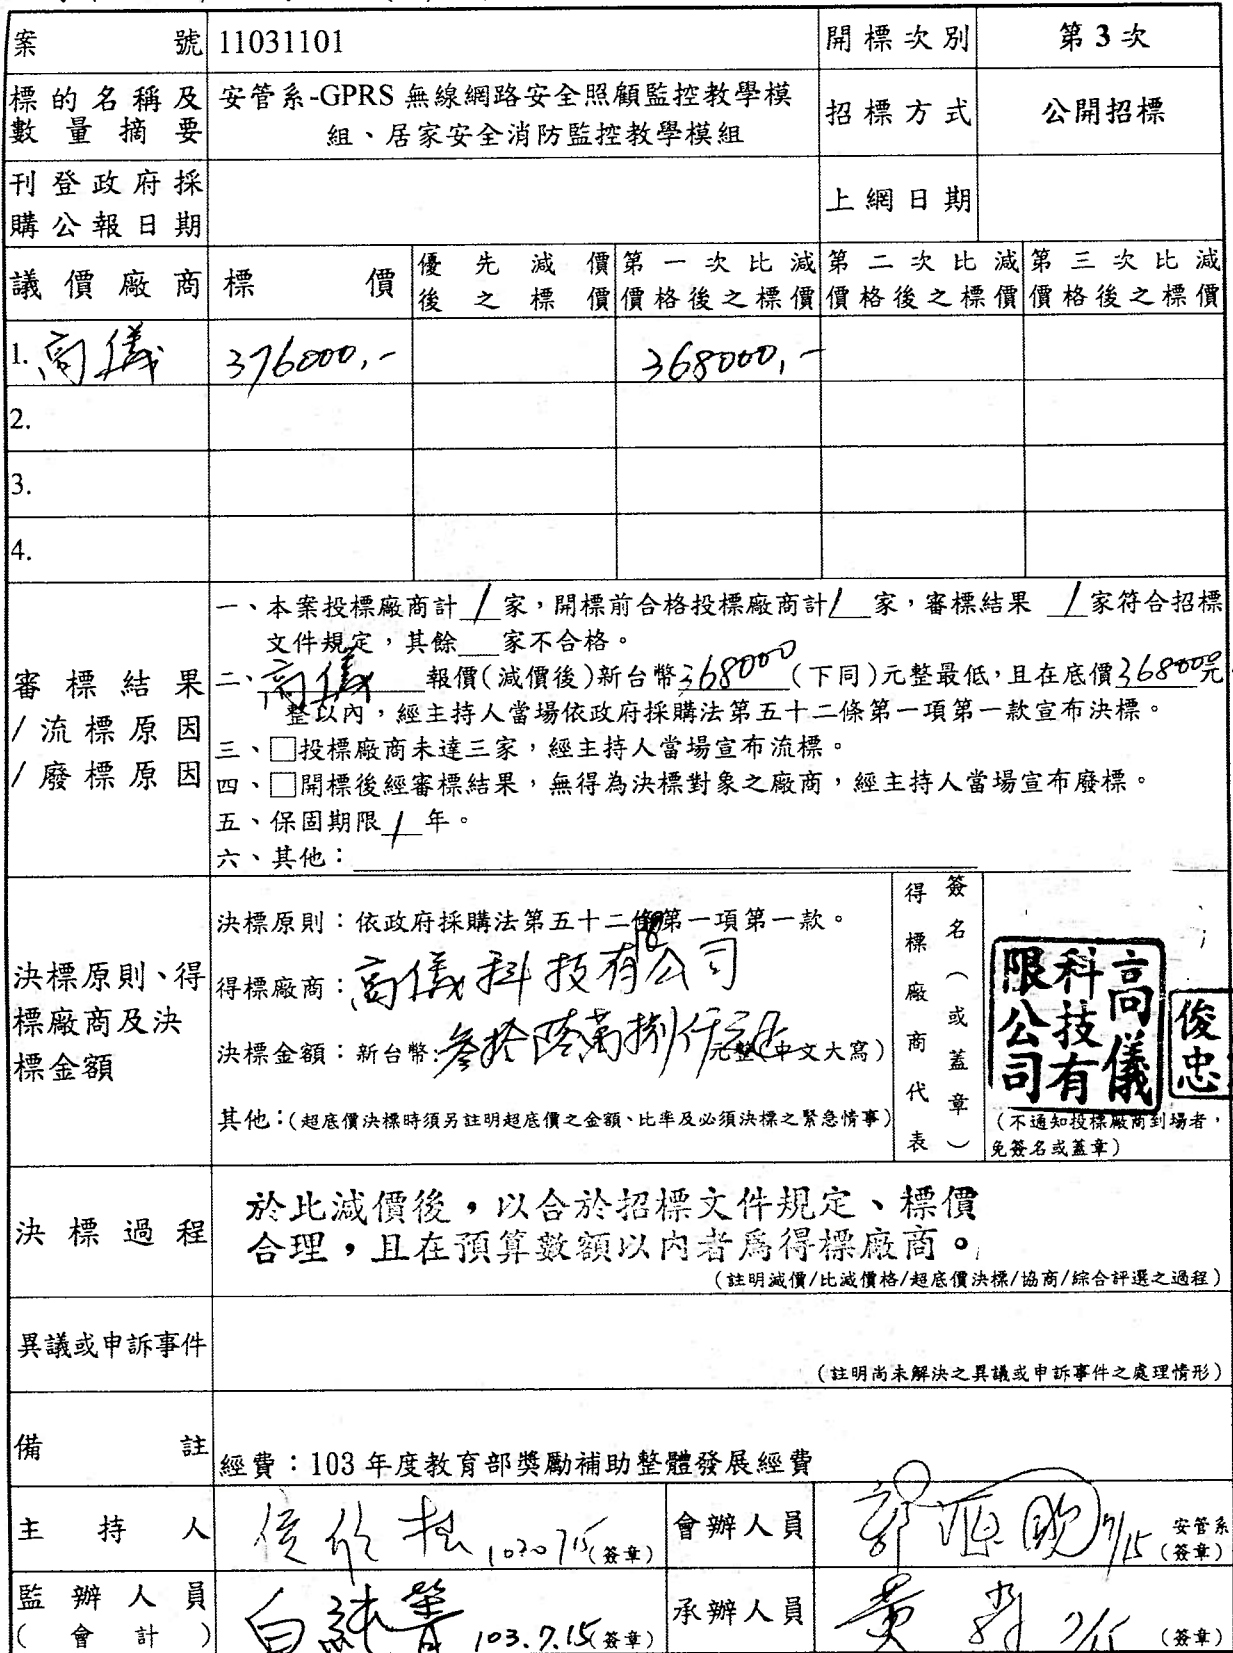 案號 11031101 開標次別 第3次
標的名稱及數量摘要 安管系-GPRS 無線網路安全照顧監控教學模
組、居家安全消防監控教學模組 招標方式 公開招標
刊登政府採購公報日期 上網日期
議價廠商 標價 優先減價後之標價 第一次比減價格後之標價 第二次比減價格後之標價 第三次比減價格後之標價
1. 高儀 376000,- 368000,-
2.
3.
4.
審標結果/流標原因/廢標原因
一、本案投標廠商計 1 家，開標前合格投標廠商計 1 家，審標結果 1 家符合招標
文件規定，其餘__家不合格。
二、高儀 報價(減價後)新台幣 368000 (下同)元整最低，且在底價 368000元
整以內，經主持人當場依政府採購法第五十二條第一項第一款宣布決標。
三、□投標廠商未達三家，經主持人當場宣布流標。
四、□開標後經審標結果，無得為決標對象之廠商，經主持人當場宣布廢標。
五、保固期限 1 年。
六、其他：
決標原則、得標廠商及決標金額
決標原則：依政府採購法第五十二條第一項第一款。
得標廠商：高儀科技有限公司
決標金額：新台幣:參拾陸萬捌仟元整(中文大寫)
其他：(超底價決標時須另註明超底價之金額、比率及必須決標之緊急情事)
得標廠商代表
簽名(或蓋章)
高儀科技有限公司
俊忠
(不通知投標廠商到場者，
免簽名或蓋章)
決標過程
於比減價後，以合於招標文件規定、標價
合理，且在預算數額以內者為得標廠商。
(註明減價/比減價格/超底價決標/協商/綜合評選之過程)
異議或申訴事件
(註明尚未解決之異議或申訴事件之處理情形)
備註 經費：103 年度教育部獎勵補助整體發展經費
主持人 (簽章) 會辦人員 7/15 安管系
(簽章)
監辦人員
(會計) 103.7.15 (簽章) 承辦人員 黃 7/15 (簽章)